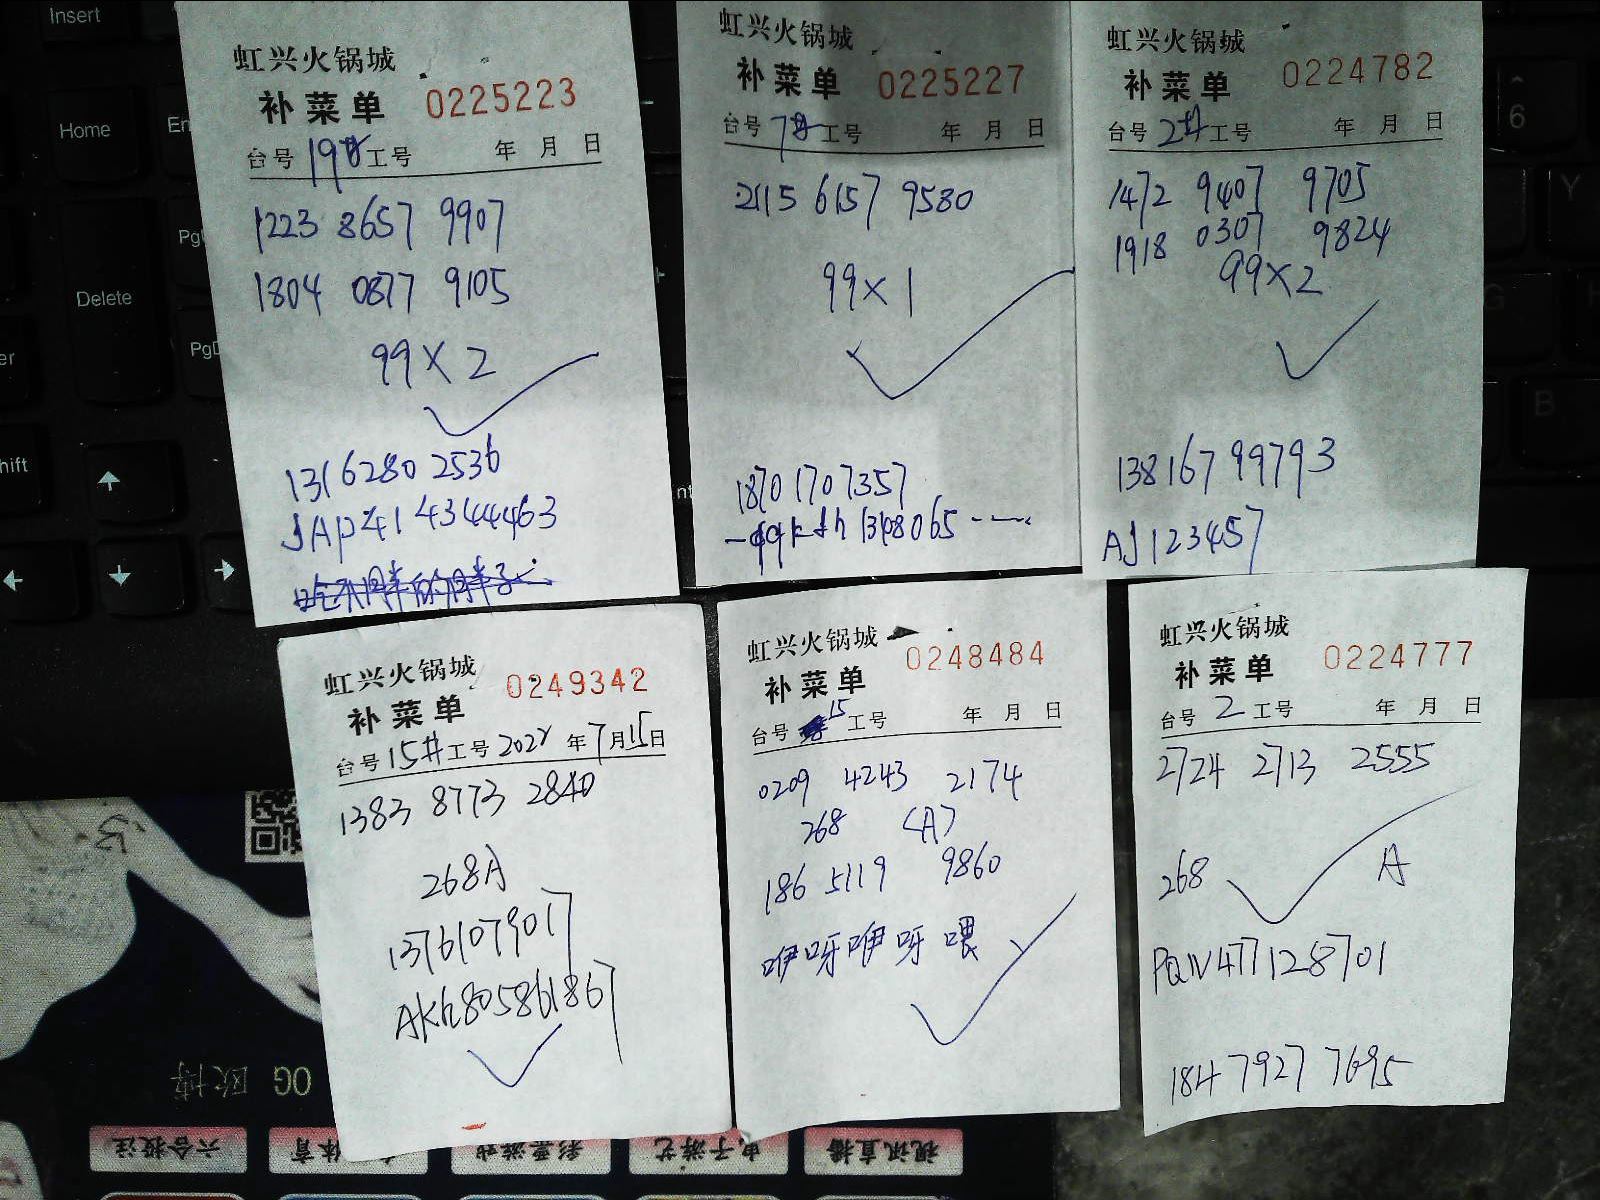 Insert
Home
Delete
虹兴火锅城
补菜单 0225223
台号 19# 工号 年 月 日
1223 8657 9907
1804 0877 9105
99×2
1316280 2536
JAP41 4344463
虹兴火锅城
补菜单 0225227
台号 7# 工号 年 月 日
2115 6157 9580
99×1
1870 1707357
虹兴火锅城
补菜单 0224782
台号 2# 工号 年 月 日
1472 9407 9705
1918 0307 9824
99×2
138167 99793
AJ123457
6
Y
G
B
虹兴火锅城
补菜单 0249342
台号 15# 工号 2022 年 7 月 15 日
1383 8773 2840
268A
13761079017
AKh805861867
虹兴火锅城
补菜单 0248484
台号 15 工号 年 月 日
0209 4243 2174
268 (A)
186 5119 9860
咿呀咿呀喂
虹兴火锅城
补菜单 0224777
台号 2 工号 年 月 日
2724 2713 2555
268 A
PQW477128701
184 7927 7695
OG 欧博
六合投注
体育
彩票游戏
电子游艺
视讯直播